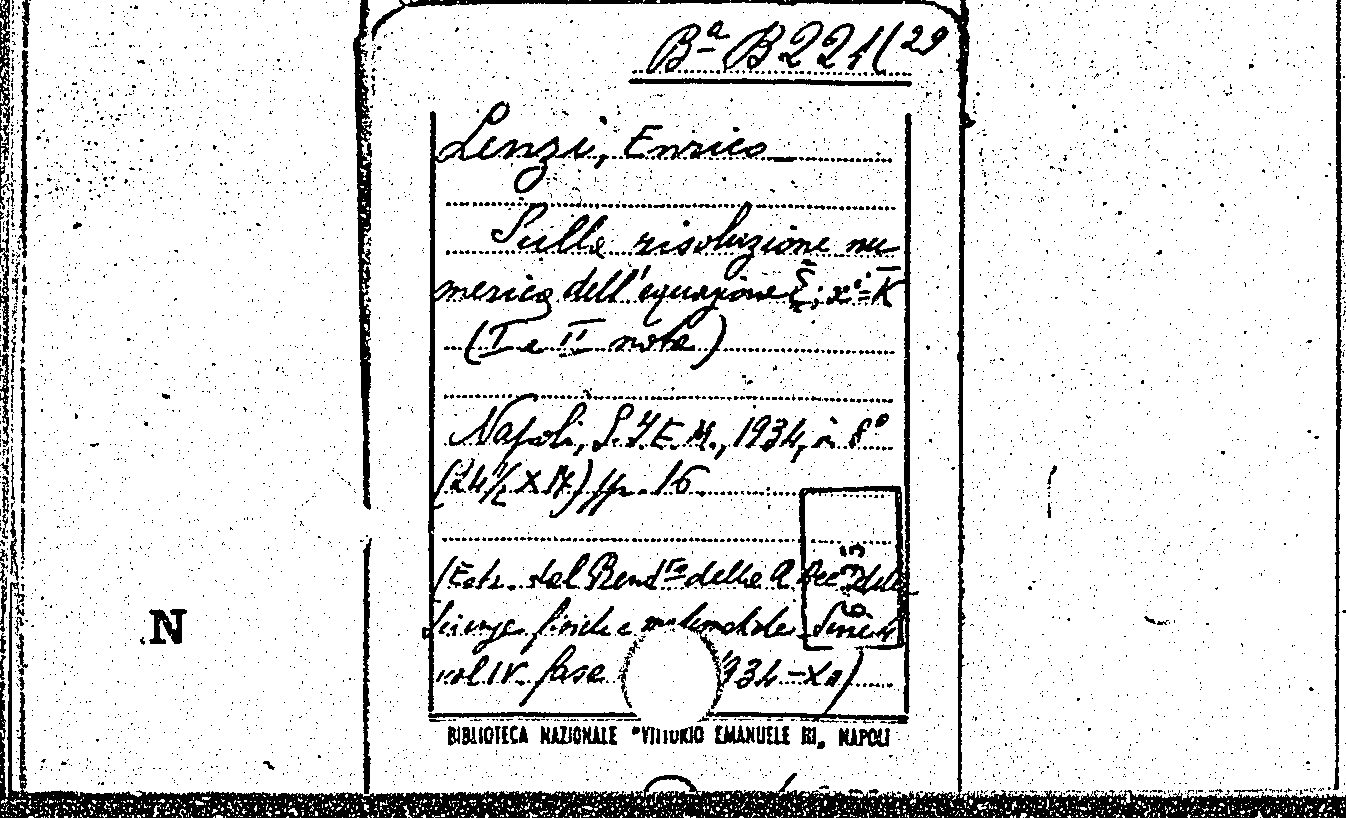 Bª B221(29
Lenzi, Enrico
Sulla risoluzione nu
merica dell'equazione
(I e II nota)
Napoli, S.I.E.M., 1934, in 8°
(24½ X 17) pp. 16
(Estr. dal Rend.to della R. Acc. delle
Scienze fisiche e matematiche Serie 4
vol IV. fasc 934-XII)
N
BIBLIOTECA NAZIONALE "VITTORIO EMANUELE III„ NAPOLI